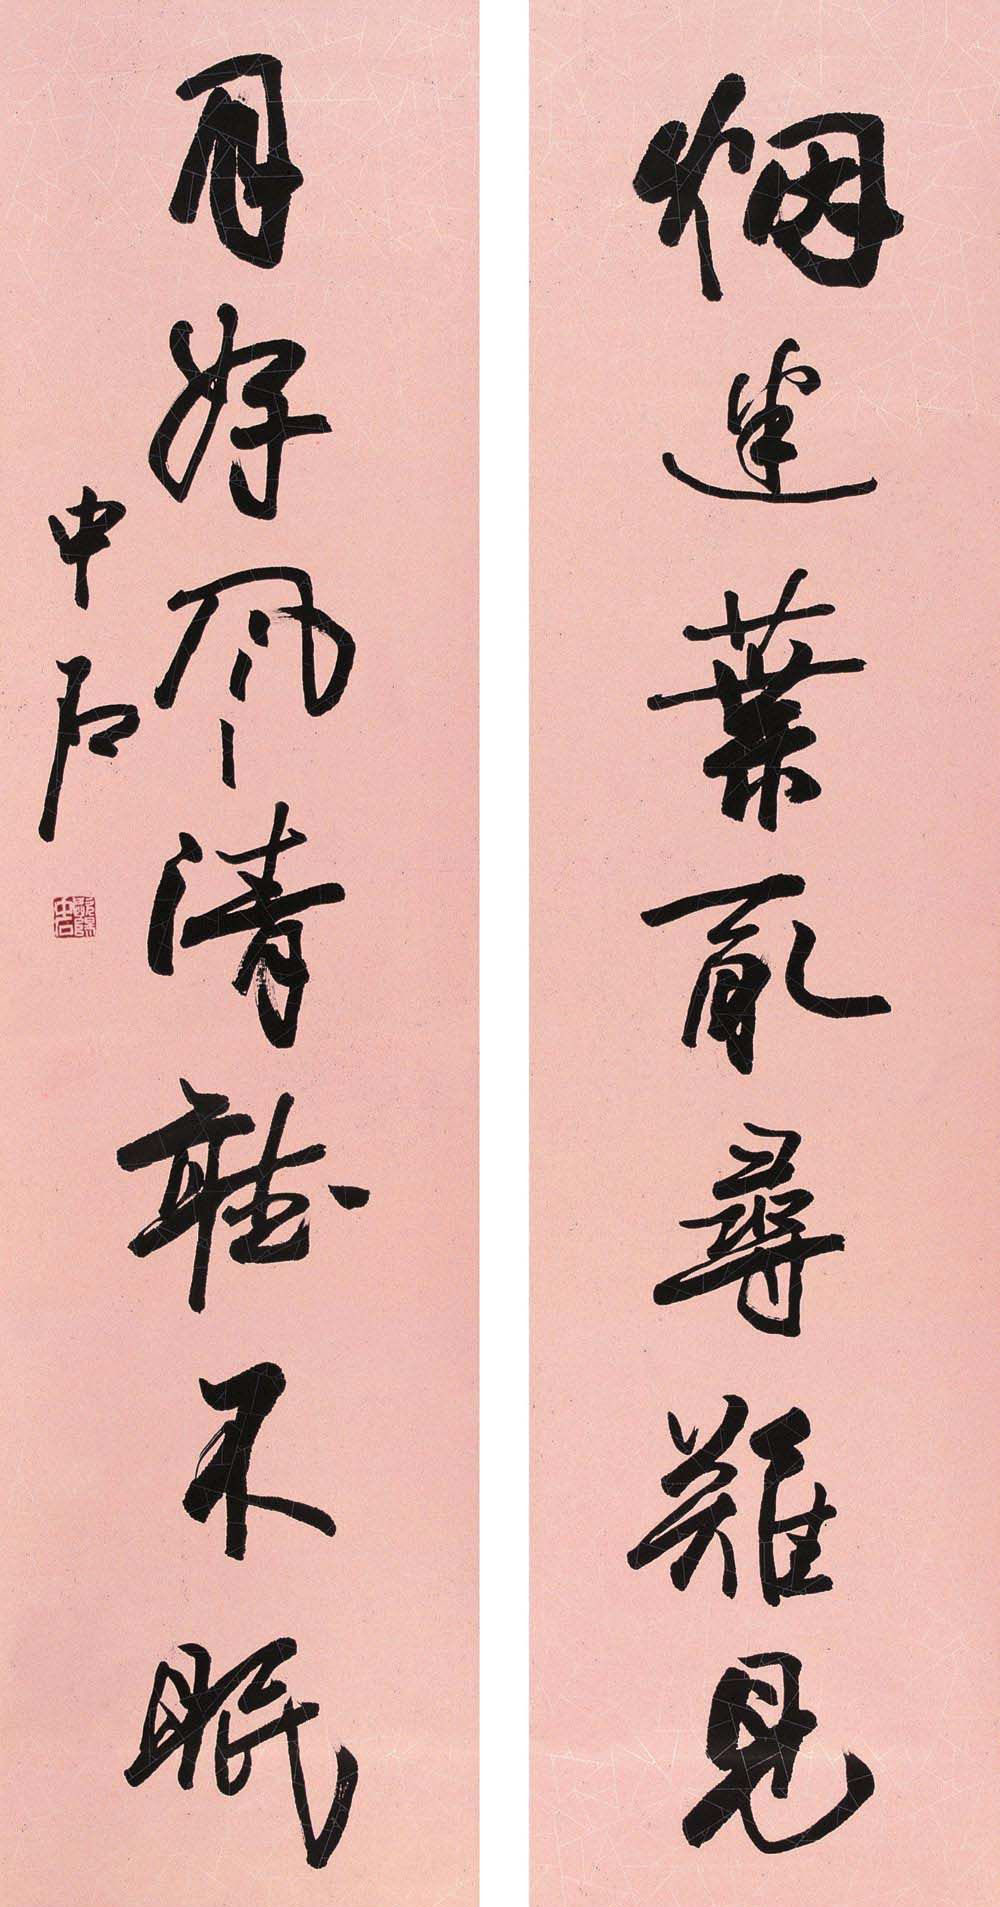 烟迷叶乱寻难见
月好风清听不眠
中石